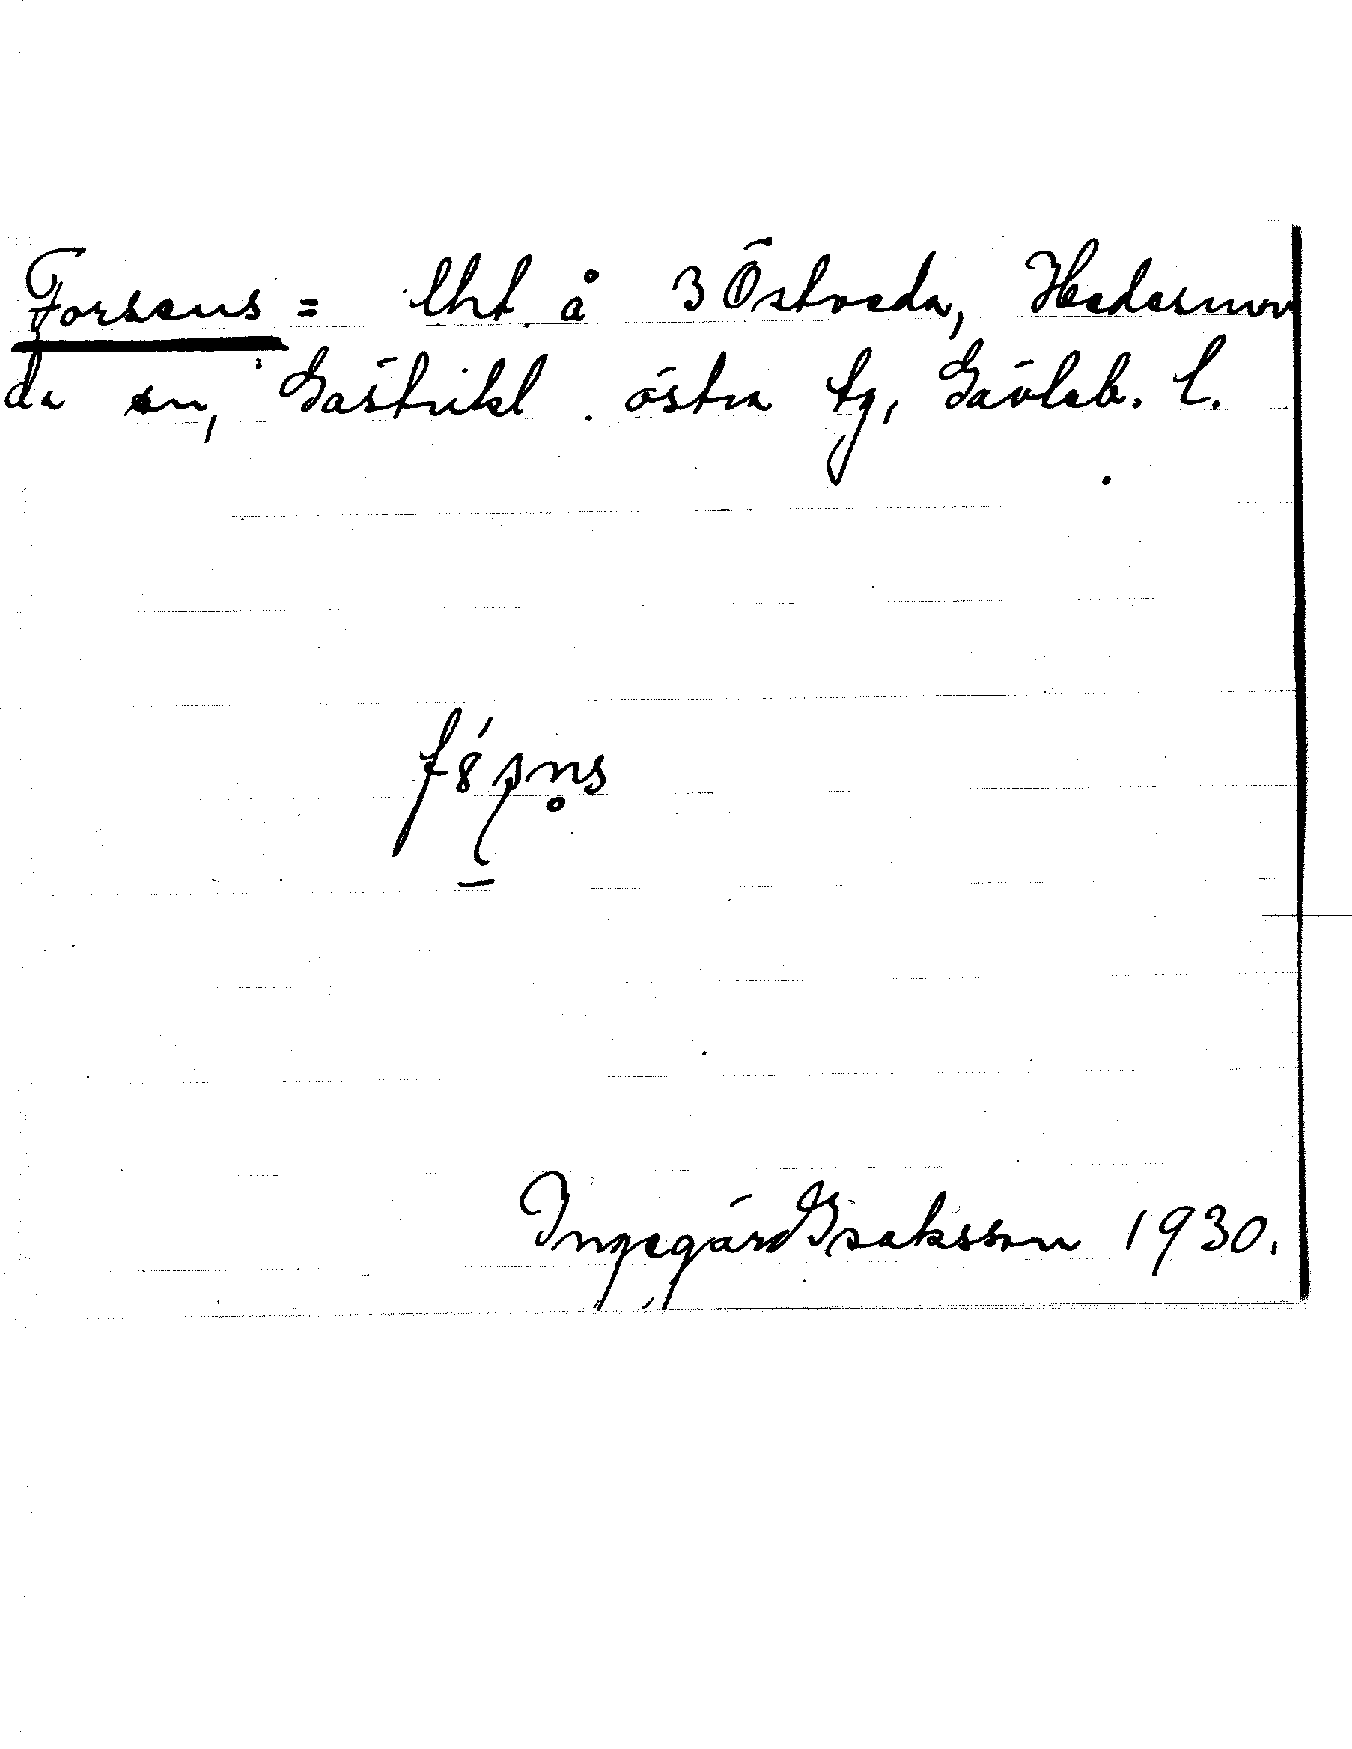 Forsens = lht å 3 Östveda, Hedesun
da sn, Gästrikl. östra tg, Gävleb. l.
Ingegärd Isaksson 1930.